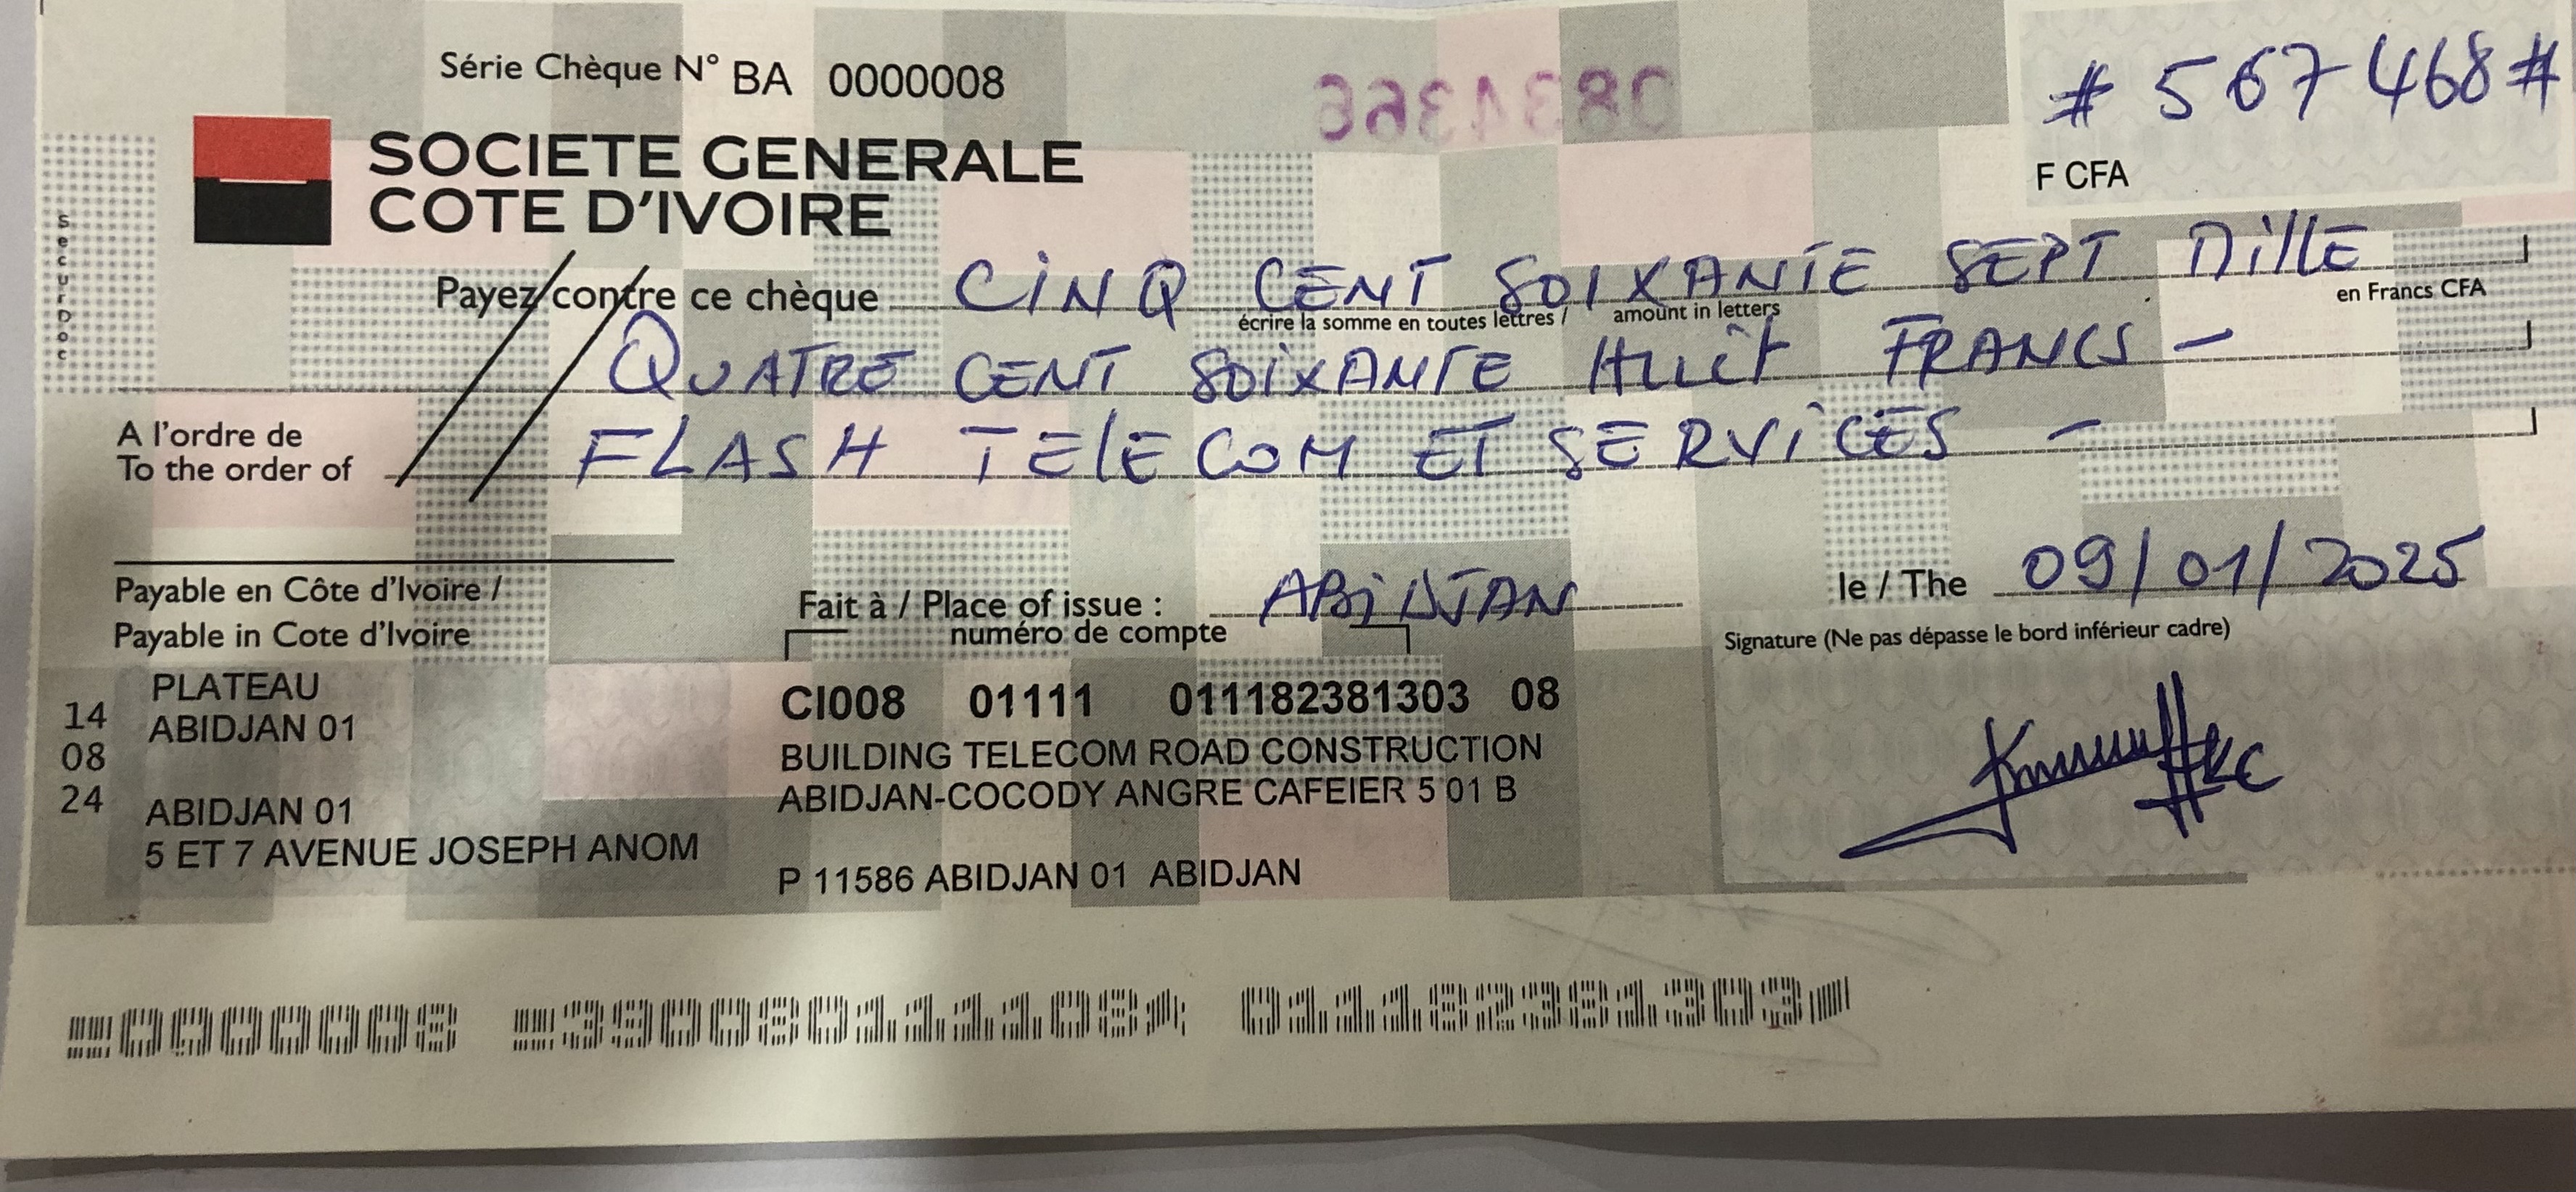 Série Chèque N° BA 0000008
0834366
# 567 468 #
F CFA
SOCIETE GENERALE
COTE D'IVOIRE
SecurDoc
Payez contre ce chèque CINQ CENT SOIXANTE SEPT MILLE
écrire la somme en toutes lettres / amount in letters
en Francs CFA
QUATRE CENT SOIXANTE HUIT FRANCS -
A l'ordre de
To the order of
FLASH TELECOM ET SERVICES -
Payable en Côte d'Ivoire /
Payable in Cote d'Ivoire
Fait à / Place of issue : ABIDJAN
le / The 09/01/2025
numéro de compte
Signature (Ne pas dépasse le bord inférieur cadre)
14
08
24
PLATEAU
ABIDJAN 01
ABIDJAN 01
5 ET 7 AVENUE JOSEPH ANOM
CI008 01111 011182381303 08
BUILDING TELECOM ROAD CONSTRUCTION
ABIDJAN-COCODY ANGRE CAFEIER 5 01 B
P 11586 ABIDJAN 01 ABIDJAN
0000008 390080111108 011182381303